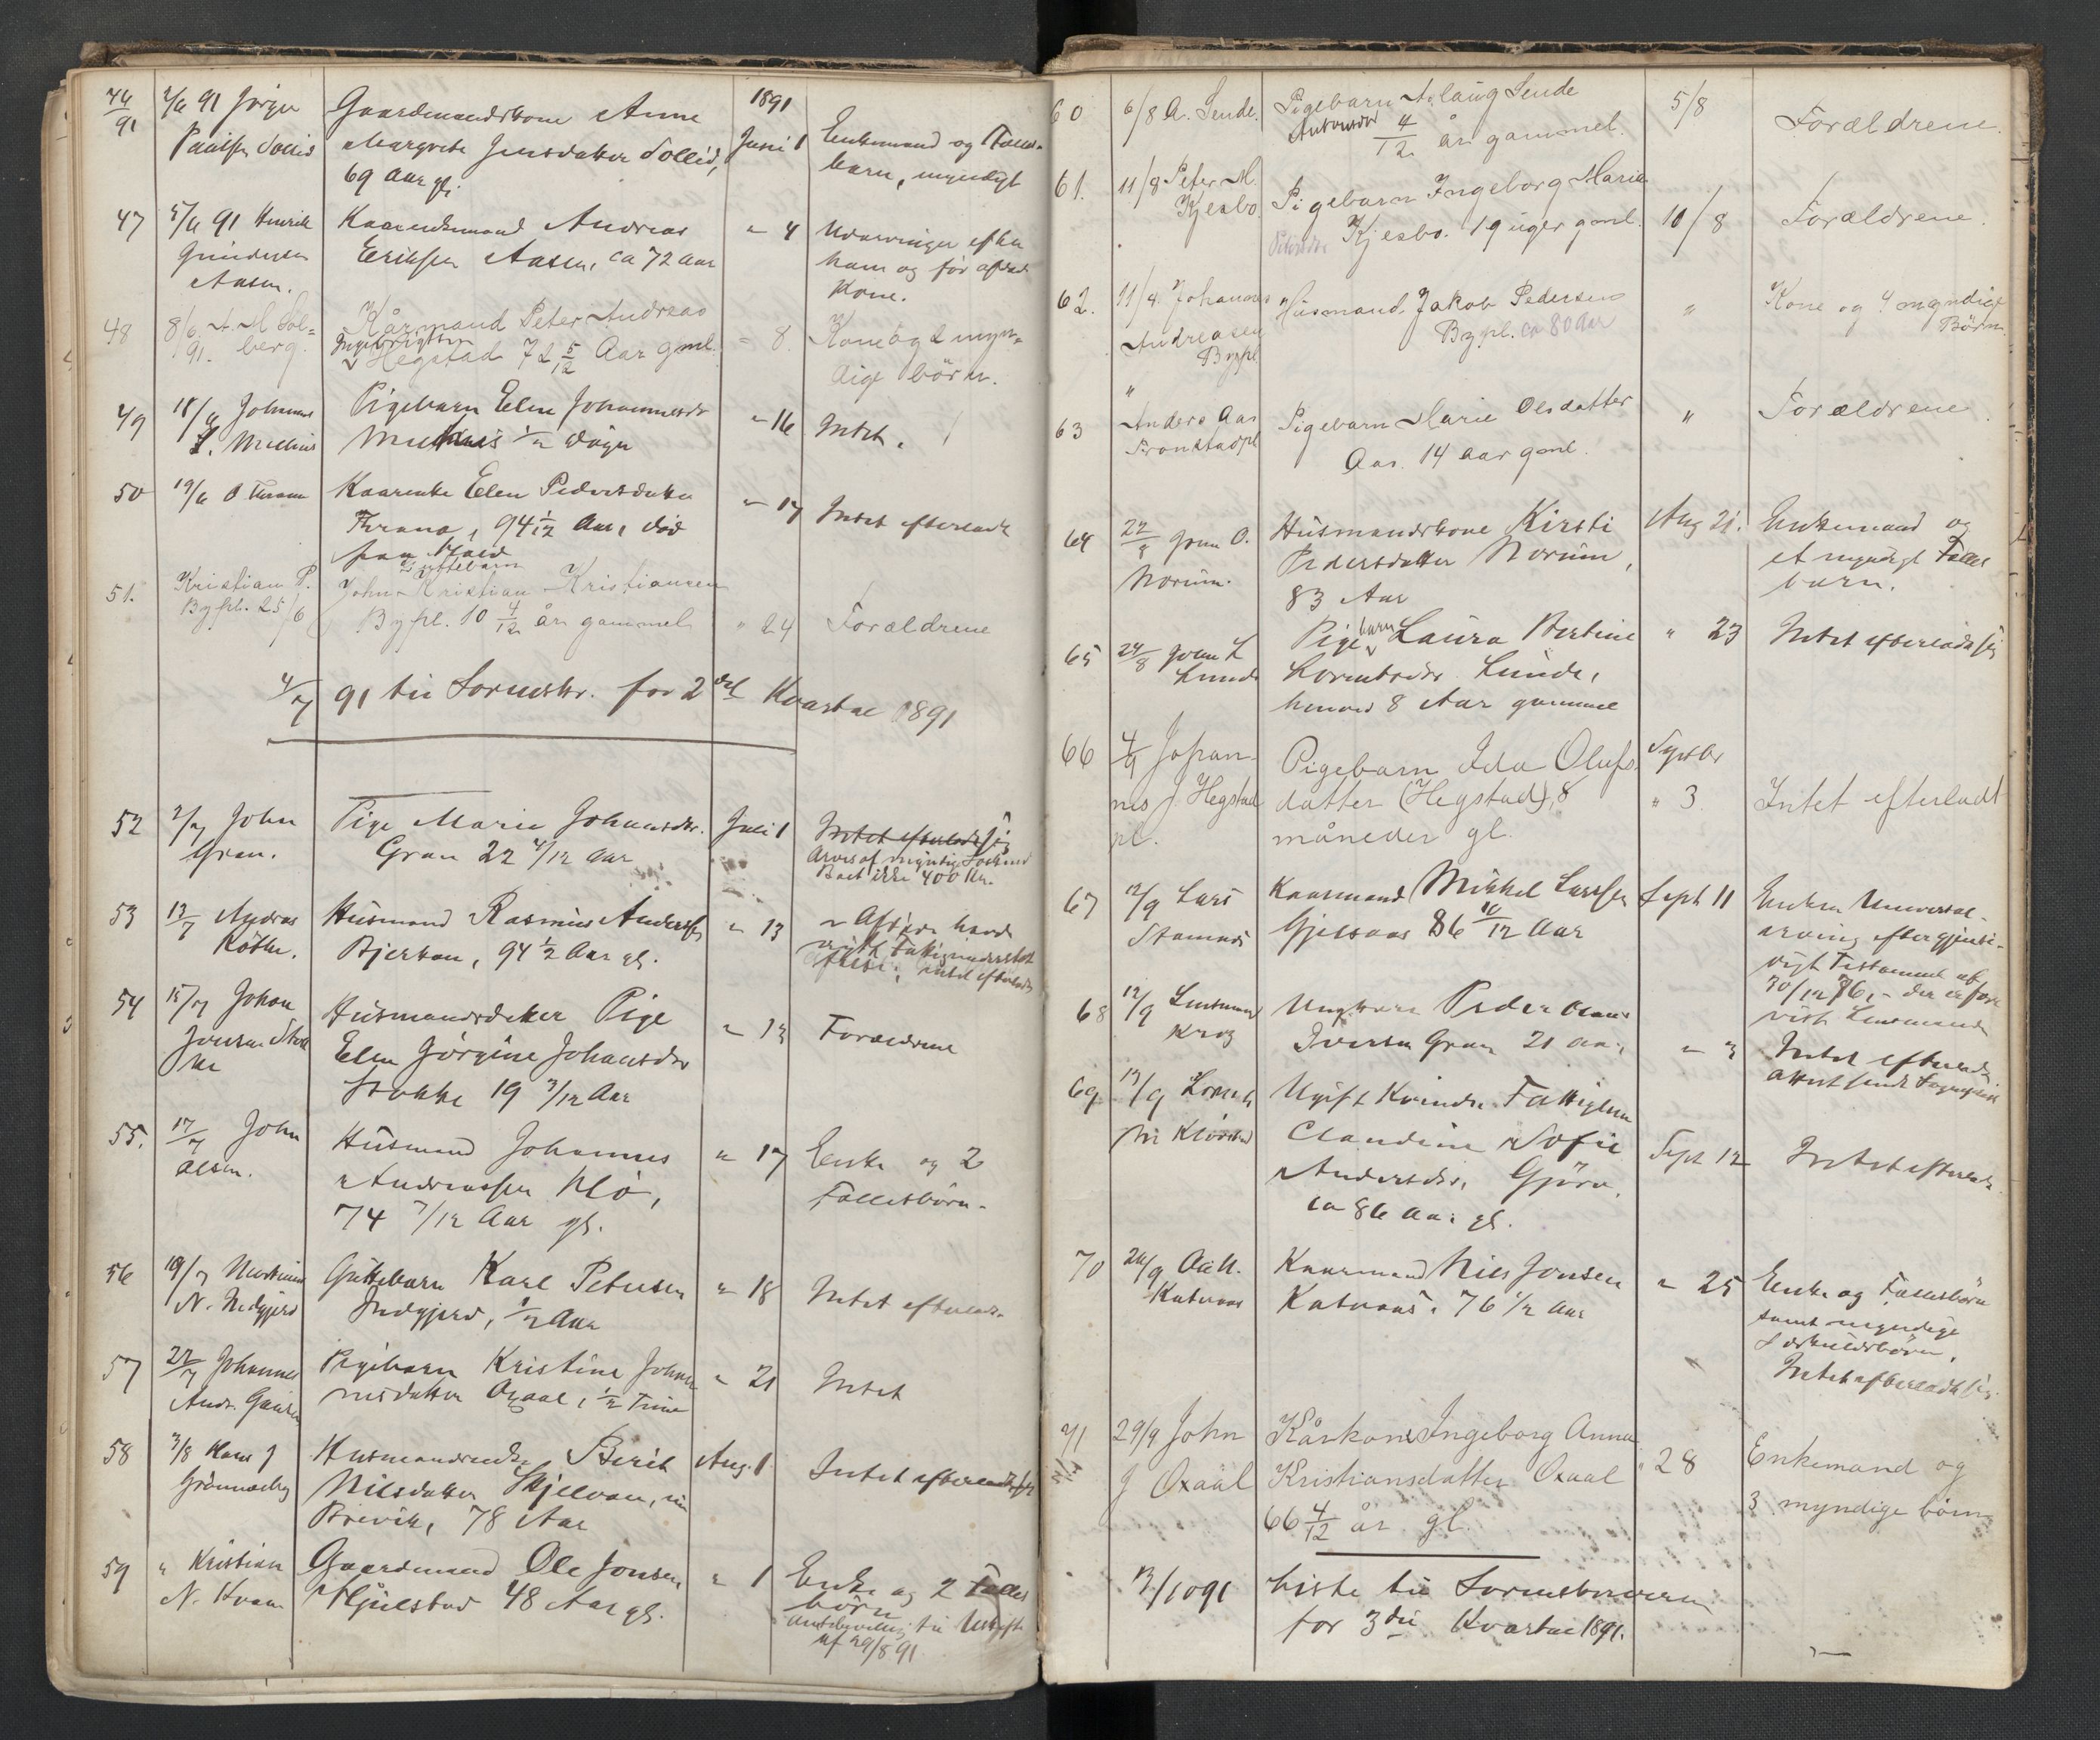 46/91 2/6 91 Jörgen Gaardmandskone Anne 1891
Paulsen Sollid Margrete Jensdatter Sollid, Juni 1 Enkemand og Fælles-
69 Aar gl. barn, myndigt
47 5/6 91 Henrik Kaarenkemand Andreas " 4 Udarvinger efter
Gundersen Eriksen Aasen, ca 72 Aar ham og før afdøde
Aasen. Kone.
48 8/6 A. M. Sol- Kårmand Peter Andreas " 8. Kone og 2 myn-
91. berg. Ingebrigtsen Hegstad 72 5/12 Aar gml. dige börn.
49 18/6 Johannes Pigebarn Elen Johannesdr " 16 Intet.
1/2 Døgn
50 19/6 O Trana Kaarenke Elen Pedersdatter " 17 Intet efterladt
Trana, 94 1/12 Aar, död
51. Kristian P. Guttebarn
Bypl. 25/6 John Kristian Kristiansen
Bypl. 10 4/12 år gammel " 24 Forældrene
4/7 91 til Sorenskr. for 2det Kvartal 1891
52 2/7 John Pige Marie Johansdr. Juli 1 Intet efterladt sig
Gran. Gran 22 4/12 Aar Arves af myndige
Boet ikke 400 Kr.
53 13/7 Andreas Husmand Rasmus Andersen " 13 Afdøde havde
Kötte. Bjerkan, 94 1/2 Aar gl. Fattigunderstøt
telse, intet efterladt
54 15/7 Johan Husmandsdatter Pige
Jonsen Stok Elen Jörgine Johansdr " 13 Forældrene
ke Stokke 19 3/12 Aar
55. 17/7 John Husmand Johannes " 17 Enke og 2
Olsen. Andreassen Klö, Fællesbörn.
74 7/12 Aar gl.
56 19/7 Martinus Guttebarn Karl Petersen " 18 Intet efterladt
N. Indgjerd Indgjerd, 1/2 Aar
57 22/7 Johannes Pigebarn Kristine Johan " 21 Intet
Andr. nesdatter Oxaal, 1/2 Time
58 3/8 Hans J Husmandsenke Berit Aug. 1 Intet efterladt sig
Nilsdatter Skjelvan,
Brevik, 78 Aar
59 " Kristian Gaardmand Ole Jonsen " 1 Enke og 2 Fælles
N. Kvam Hjulstad 48 Aar gl. börn
Amtsbevilling til
af 29/8 91
60 6/8 A. Sende. Pigebarn Aslaug Sende 5/8 Forældrene.
Antonsdr 4/12 år gammel.
61. 11/8 Peter M. Pigebarn Ingeborg Marie
Kjesbo. Petersdr Kjesbo. 19 uger gml. 10/8 Forældrene.
62. 11/8. Johannes Husmand Jakob Pedersen " Kone og 4 myndige
Andreasen Bypl. ca 80 Aar Börn.
Bypl
63 " Anders Aas Pigebarn Marie Olsdatter " Forældrene
Tronstadpl Aas. 14 aar gml.
64 22/8 Gran O. Husmandskone Kirsti Aug 21. Enkemand og
Norum. Pedersdatter Norum, et myndigt Fælles
83 Aar barn.
65 24/8 L Pigebarn Laura Bertine " 23 Intet efterladt sig
Lunde Lorentsdr Lunde,
henved 8 Aar gammel
66 4/9 Johan- Pigebarn Ida Olufs- Septbr
nes J. Hegstad datter (Hegstad), 8 " 3. Intet efterladt
pl. måneder gl.
67 12/9 Lars Kaarmand Mikkel Larsen Sept 11 Enken Universal-
Stamnes 86 10/12 Aar arving efter gjensi-
digt Testament af
30/12 76, - der er fore
vist Lensmanden
68 12/9 Lensmand Ungkarl Peder Olaus
Krog Iversen Gran 21 aar " 3 Intet efterladt
69 13/9 Lorents Ugift Kvinde Fattiglem
Claudine Sofie Sept 12 Intet efterladt
Andersdr. Gjörv,
ca 86 Aar gl.
70 26/9 Kaarmand Nils Jonsen " 25 Enke og Fællesbörn
Katvaas Katvaas. 76 1/2 Aar samt myndige
Særkuldsbörn.
Intet efterladt sig.
71 29/9 John Kårkone Ingeborg Anna
J Oxaal Kristiansdatter Oxaal " 28 Enkemand og
66 4/12 år gl. 3 myndige börn
13/10 91 Liste til Sorenskriveren
for 3die Kvartal 1891.